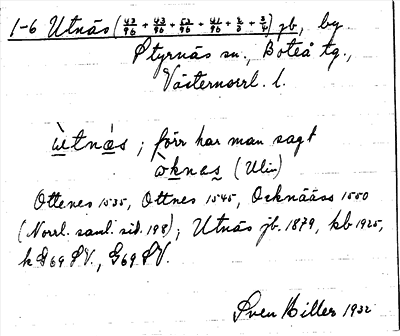 1-6 Utnäs (43/96 + 43/96 + 53/96 + 41/96 + 2/3 + 3/4) jb, by
Styrnäs sn., Boteå tg.,
Västernorrl. l.
ùtnás ; förr har man sagt
òknas (Ulin)
Ottenes 1535, Ottnes 1545, Ocknääss 1550
(Norrl. saml. sid. 198); Utnäs jb. 1879, kb 1925,
k G 69 SV., G 69 SV.
Sven Hillert 1932